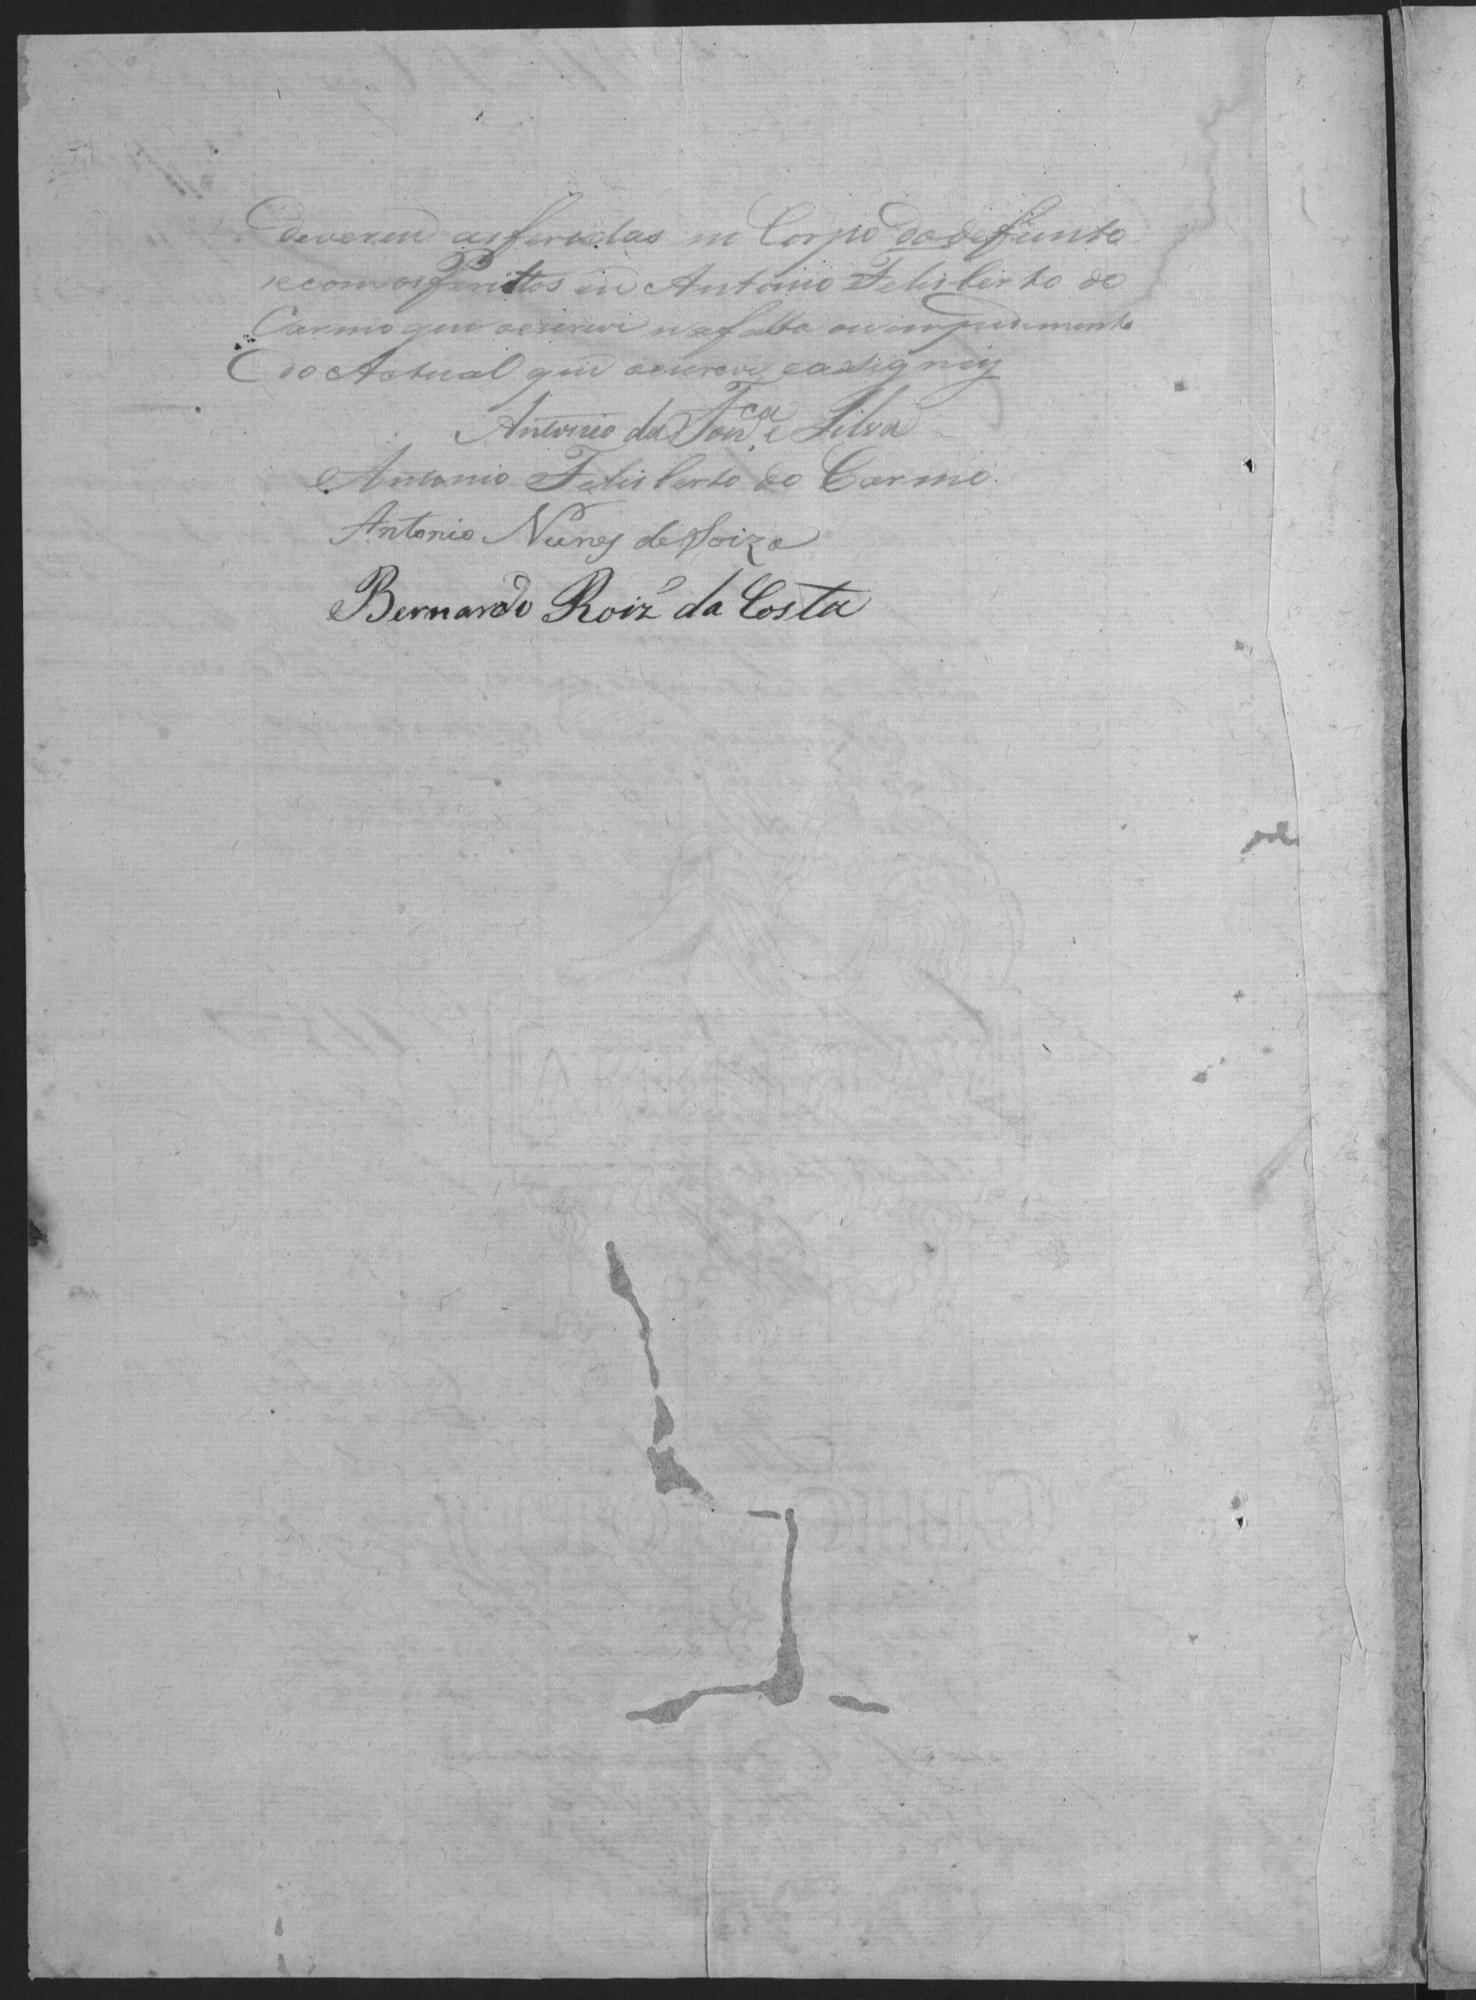 deverem as feridas no Corpo do defunto
e com os perittos eu Antonio Felisberto do
Carmo que escrevi na falta ou impedimento
do Actual que escrevi e asigney
Antonio da Fonca e Silva
Antonio Felisberto do Carmo
Antonio Nunes de Soiza
Bernardo Roiz da Costa